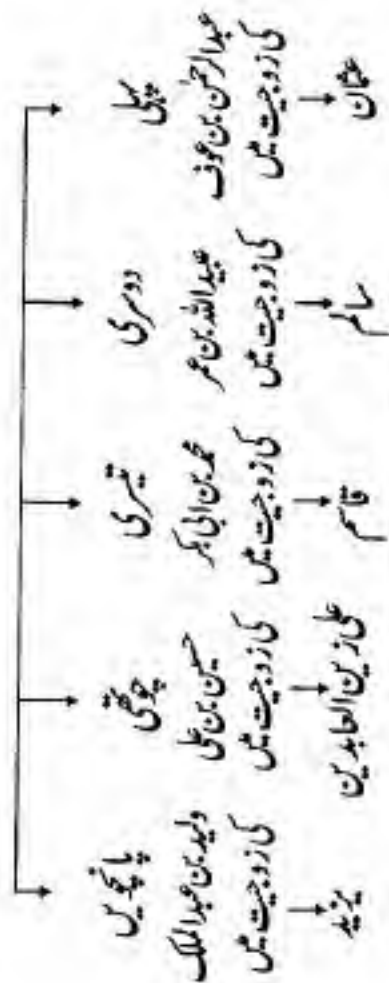 پہلی
عبدالرحمٰن بن عوف
کی زوجیت میں
عثمان
دوسری
عبیداللہ بن عمر
کی زوجیت میں
سالم
تیسری
محمد بن ابی بکر
کی زوجیت میں
قاسم
چوتھی
حسین بن علی
کی زوجیت میں
علی زین العابدین
پانچویں
ولید بن عبدالملک
کی زوجیت میں
یزید